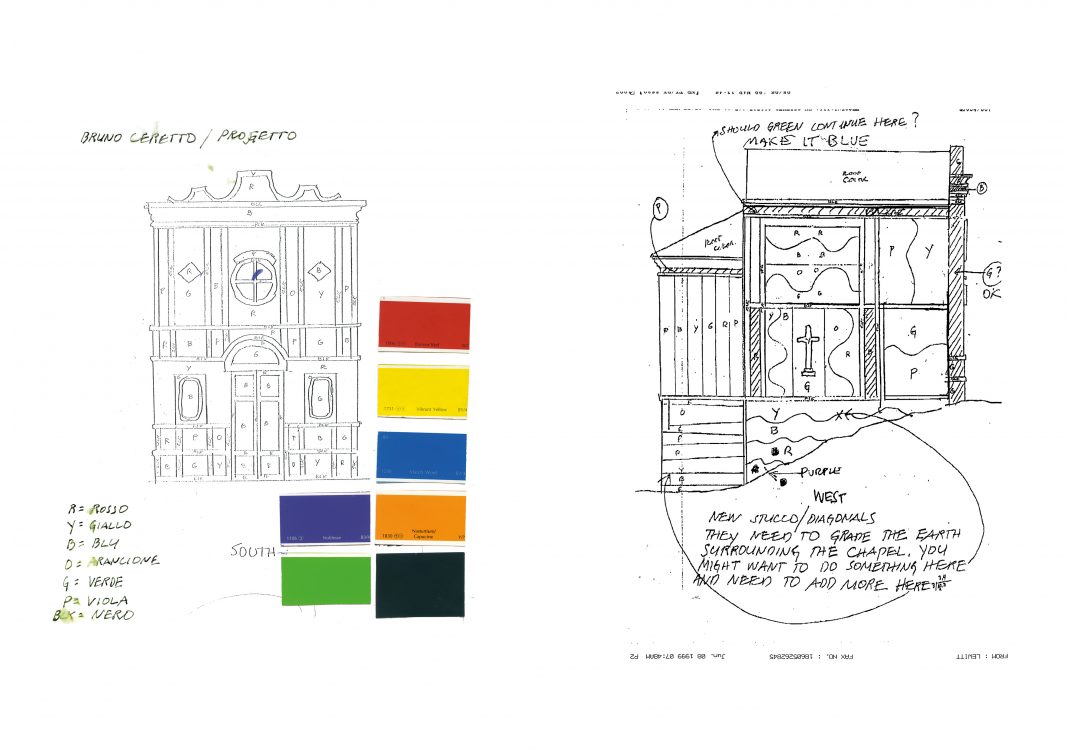 BRUNO CERETTO / PROGETTO
Y
R
BLK
B
BLK
R
G
B
Y
R
P
B
P
G
B
P
BLK
G
Y
B
BL
G
R
P
O
P
B
G
B
G
Y
R
B
B
O
Y
R
P
BLK
R = ROSSO
Y = GIALLO
B = BLU
O = ARANCIONE
G = VERDE
P = VIOLA
BLK = NERO
SOUTH
Vibrant Yellow
Noblesse
Nasturtium/
Capucine
SHOULD GREEN CONTINUE HERE?
MAKE IT BLUE
ROOF
COLOR
B
P
ROOF
COLOR
R R
B B
O O
G G
P Y
G?
OK
P B Y G R P
Y B
O
R
G
G
P
O
P
R
Y
B
R
PURPLE
WEST
NEW STUCCO/DIAGONALS
THEY NEED TO GRADE THE EARTH
SURROUNDING THE CHAPEL. YOU
MIGHT WANT TO DO SOMETHING HERE
AND NEED TO ADD MORE HERE
FROM : LEWITT FAX NO. : 18605262845 Jun. 08 1999 07:48AM P2